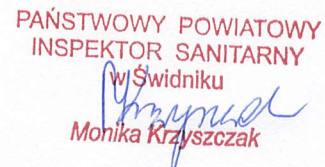 PAŃSTWOWY POWIATOWY
INSPEKTOR SANITARNY
w Świdniku
Monika Krzyszczak